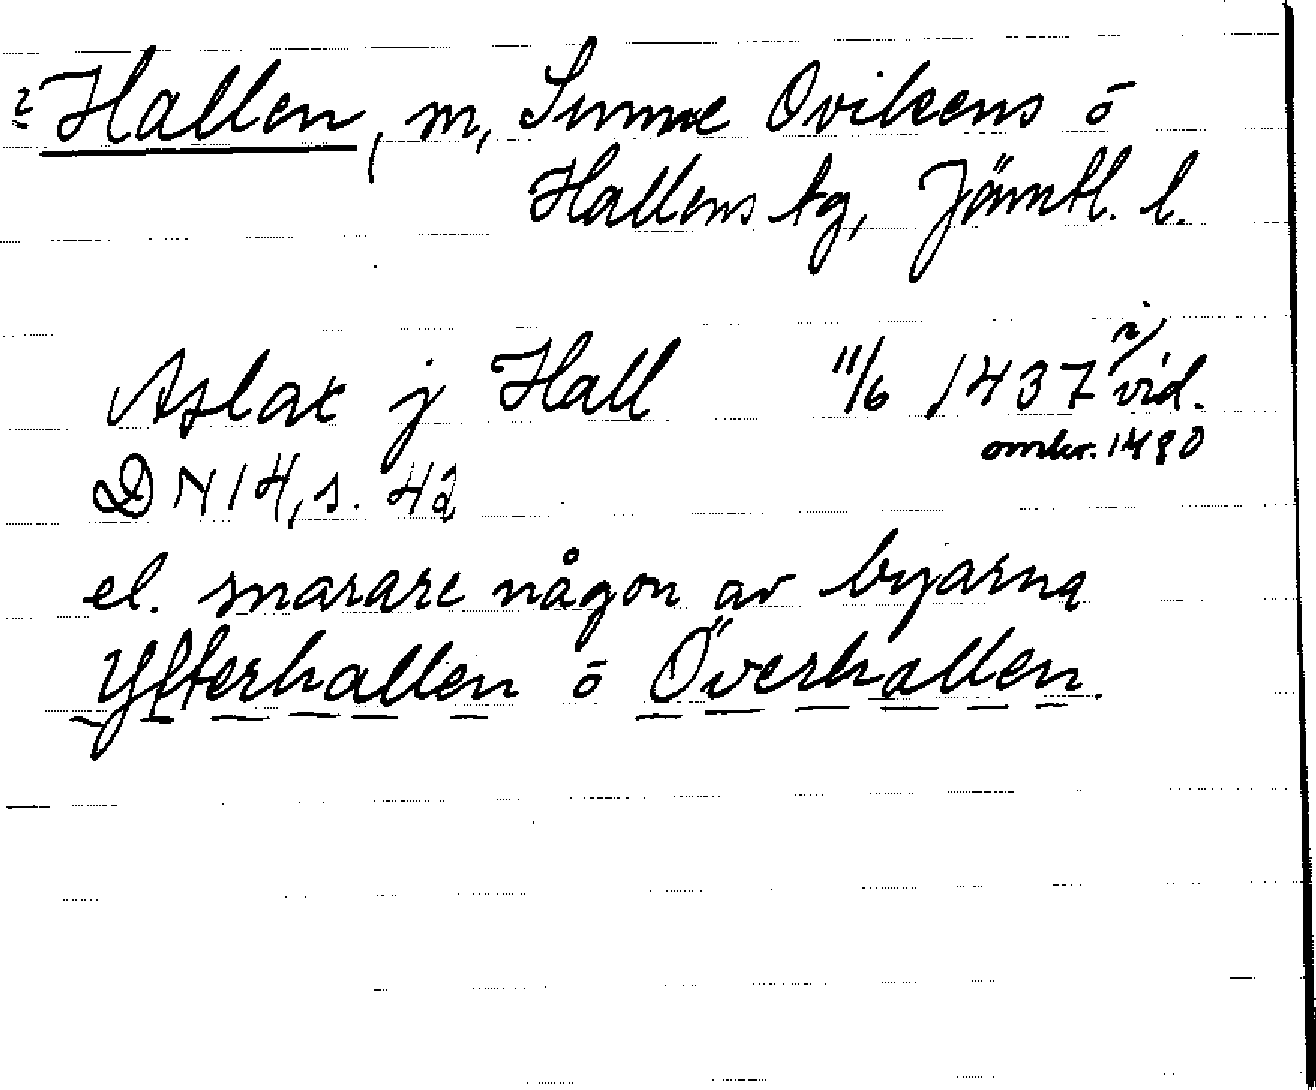 Hallen, m, Sunne Ovikens o
Hallens tg, Jämtl. l.
Aslak j Hall 11/6 1437 i vid.
omkr. 1480
DN 14, s. 42
el. snarare någon av byarna
Ytterhallen o Överhallen.